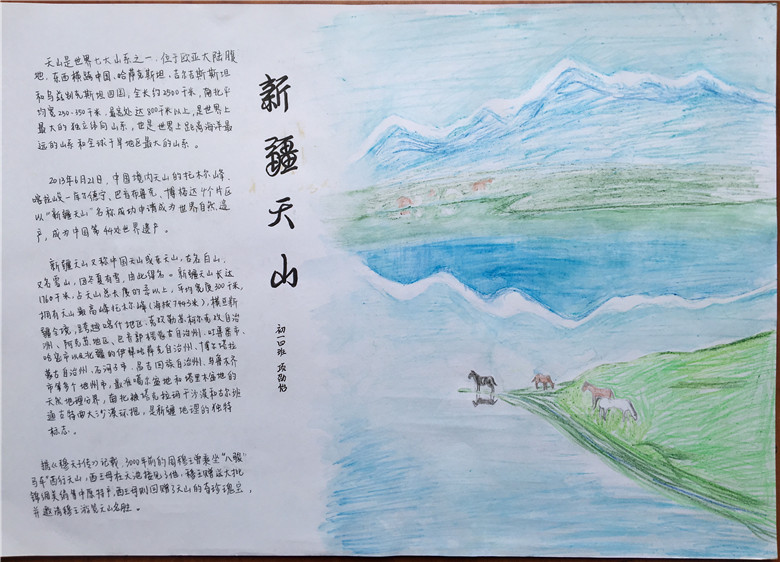 天山是世界七大山系之一，位于欧亚大陆腹
地，东西横跨中国、哈萨克斯坦、吉尔吉斯斯坦
和乌兹别克斯坦四国，全长约2500千米，南北平
均宽250-350千米，最宽处达800千米以上，是世界上
最大的独立纬向山系，也是世界上距离海洋最
远的山系和全球干旱地区最大的山系。
2013年6月21日，中国境内天山的托木尔峰、
喀拉峻-库尔德宁、巴音布鲁克、博格达4个片区
以“新疆天山”名称成功申请成为世界自然遗
产，成为中国第44处世界遗产。
新疆天山又称中国天山或东天山，古名白山，
又名雪山，因冬夏有雪，由此得名。新疆天山长达
1760千米，占天山总长度的 以上，平均宽度300千米，
拥有天山最高峰托木尔峰(海拔7443米)，横亘新
疆全境，跨越喀什地区、克孜勒苏柯尔克孜自治
州、阿克苏地区、巴音郭楞蒙古自治州、吐鲁番市、
哈密市以及北疆的伊犁哈萨克自治州、博尔塔拉
蒙古自治州、石河子市、昌吉回族自治州、乌鲁木齐
市等多个地州市，最准噶尔盆地和塔里木盆地的
天然地理分界，南北被塔克拉玛干沙漠和古尔班
通古特两大沙漠环抱，是新疆地理的独特
标志。
据《穆天子传》记载，3000年前的周穆王曾乘坐“八骏
马车”西行天山，西王母在天池接见了他，穆王赠送大批
锦绸美绢等中原特产，西王母则回赠了天山的奇珍瑰宝，
并邀请穆王游览天山名胜。
新疆天山
初一四班